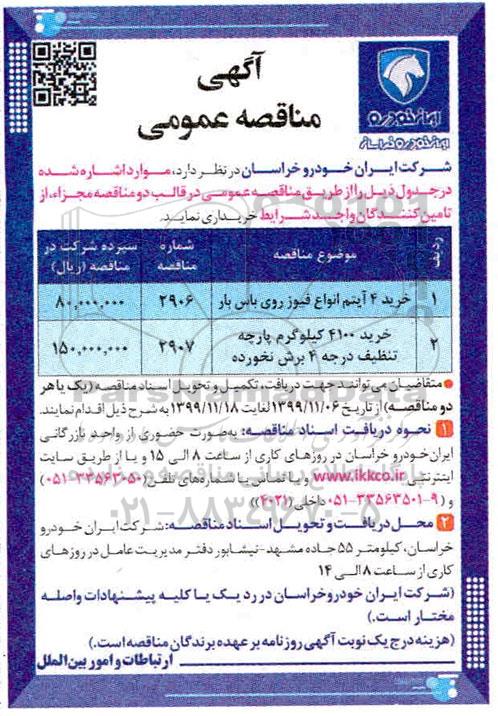 آگهی
مناقصه عمومی
ایران خودرو
ایران خودرو خراسان
شرکت ایران خودرو خراسان در نظر دارد، موارد اشاره شده
در جدول ذیل را از طریق مناقصه عمومی در قالب دو مناقصه مجزا، از
تامین کنندگان واجد شرایط خریداری نماید.
ردیف موضوع مناقصه شماره مناقصه سپرده شرکت در مناقصه (ریال)
۱ خرید ۴ آیتم انواع فیوز روی باس بار ۲۹۰۶ ۸۰,۰۰۰,۰۰۰
۲ خرید ۴۱۰۰ کیلوگرم پارچه تنظیف درجه ۴ برش نخورده ۲۹۰۷ ۱۵۰,۰۰۰,۰۰۰
● متقاضیان می توانند جهت دریافت، تکمیل و تحویل اسناد مناقصه (یک یا هر
دو مناقصه) از تاریخ ۱۳۹۹/۱۱/۰۶ لغایت ۱۳۹۹/۱۱/۱۸ به شرح ذیل اقدام نمایند.
۱ نحوه دریافت اسناد مناقصه: به صورت حضوری از واحد بازرگانی
ایران خودرو خراسان در روزهای کاری از ساعت ۸ الی ۱۵ و یا از طریق سایت
اینترنتی www.ikkco.ir و یا تماس با شماره های تلفن (۳۳۵۶۳۰۵۰-۰۵۱)
و (۹-۳۳۵۶۳۵۰۱-۰۵۱ داخلی (۴۰۲۱))
۲ محل دریافت و تحویل اسناد مناقصه: شرکت ایران خودرو
خراسان، کیلومتر ۵۵ جاده مشهد-نیشابور دفتر مدیریت عامل در روزهای
کاری از ساعت ۸ الی ۱۴
(شرکت ایران خودرو خراسان در رد یک یا کلیه پیشنهادات واصله
مختار است.)
(هزینه درج یک نوبت آگهی روزنامه بر عهده برندگان مناقصه است.)
ارتباطات و امور بین الملل
ParsNamadData
۰۲۱-۸۸۳۴۹۶۷۰-۵